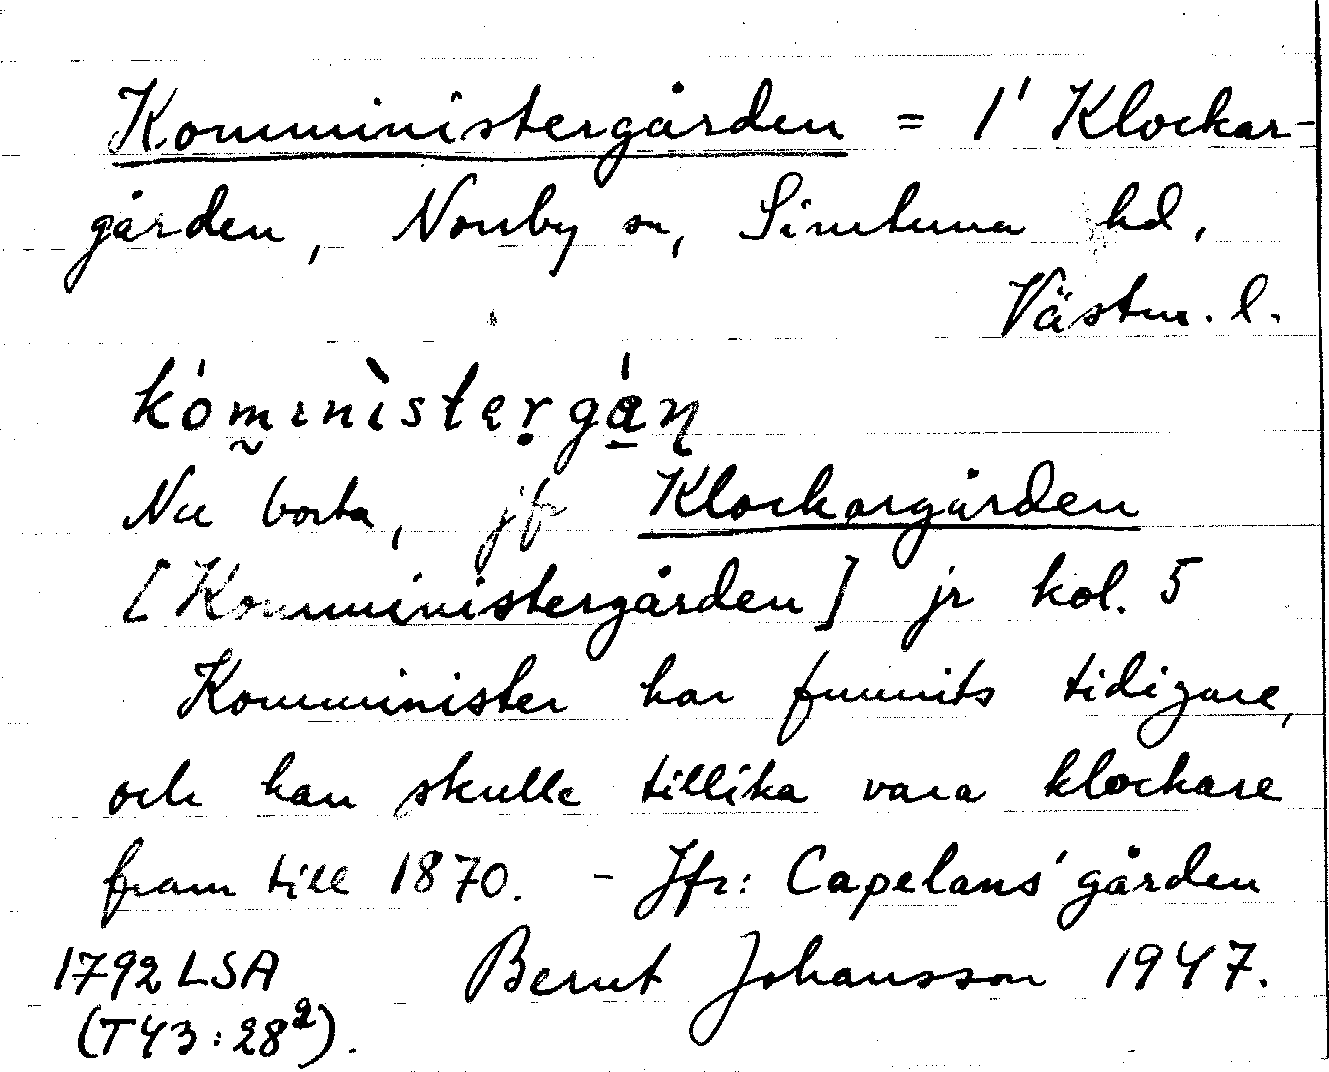 Komministergården = 1' Klockar-
gården, Norrby sn, Simtuna hd,
Västm. l.
kóminìstergán
Nu borta, jfr Klockargården
[Komministergården] jr kol. 5
Komminister har funnits tidigare,
och han skulle tillika vara klockare
fram till 1870. - Jfr: Capelans' gården
1792 LSA Bernt Johansson 1947.
(T43:28²).